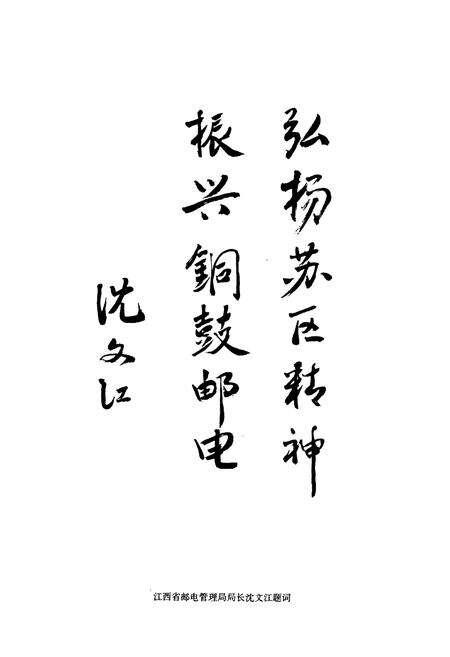 弘扬苏区精神
振兴銅鼓邮电
沈文江
江西省邮电管理局局长沈文江题词